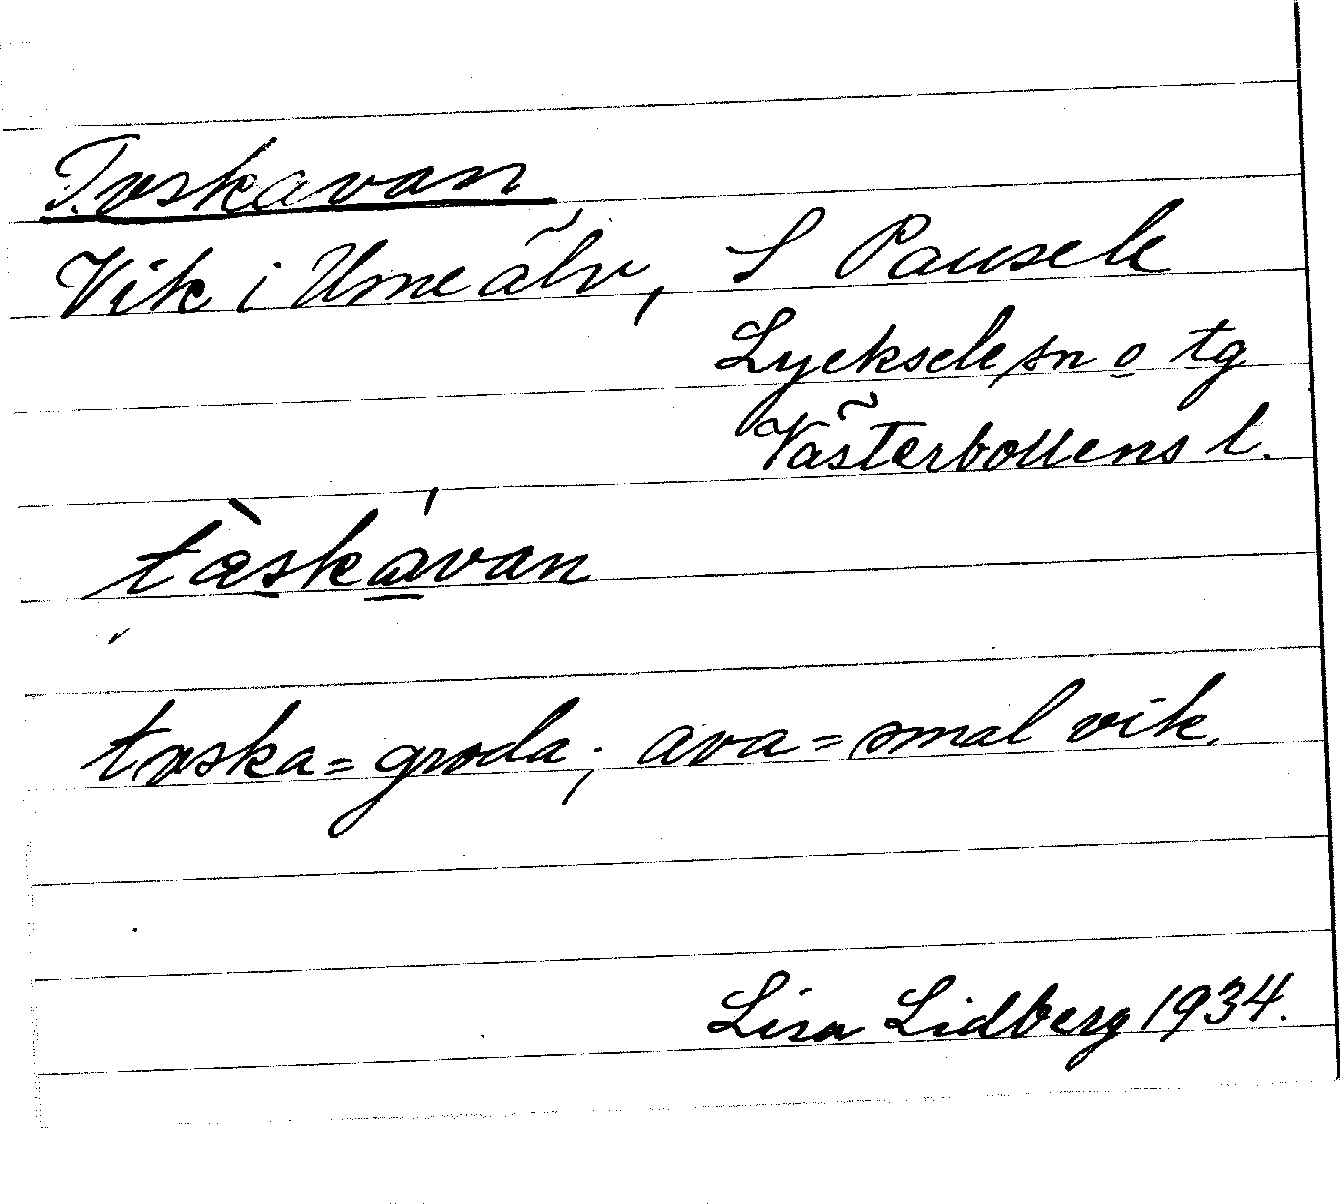 Toskavan
Vik i Ume älv, S Pausele
Lycksele sn o tg
Västerbottens l.
tàskávan
toska = groda; ava = smal vik.
Lisa Lidberg 1934.